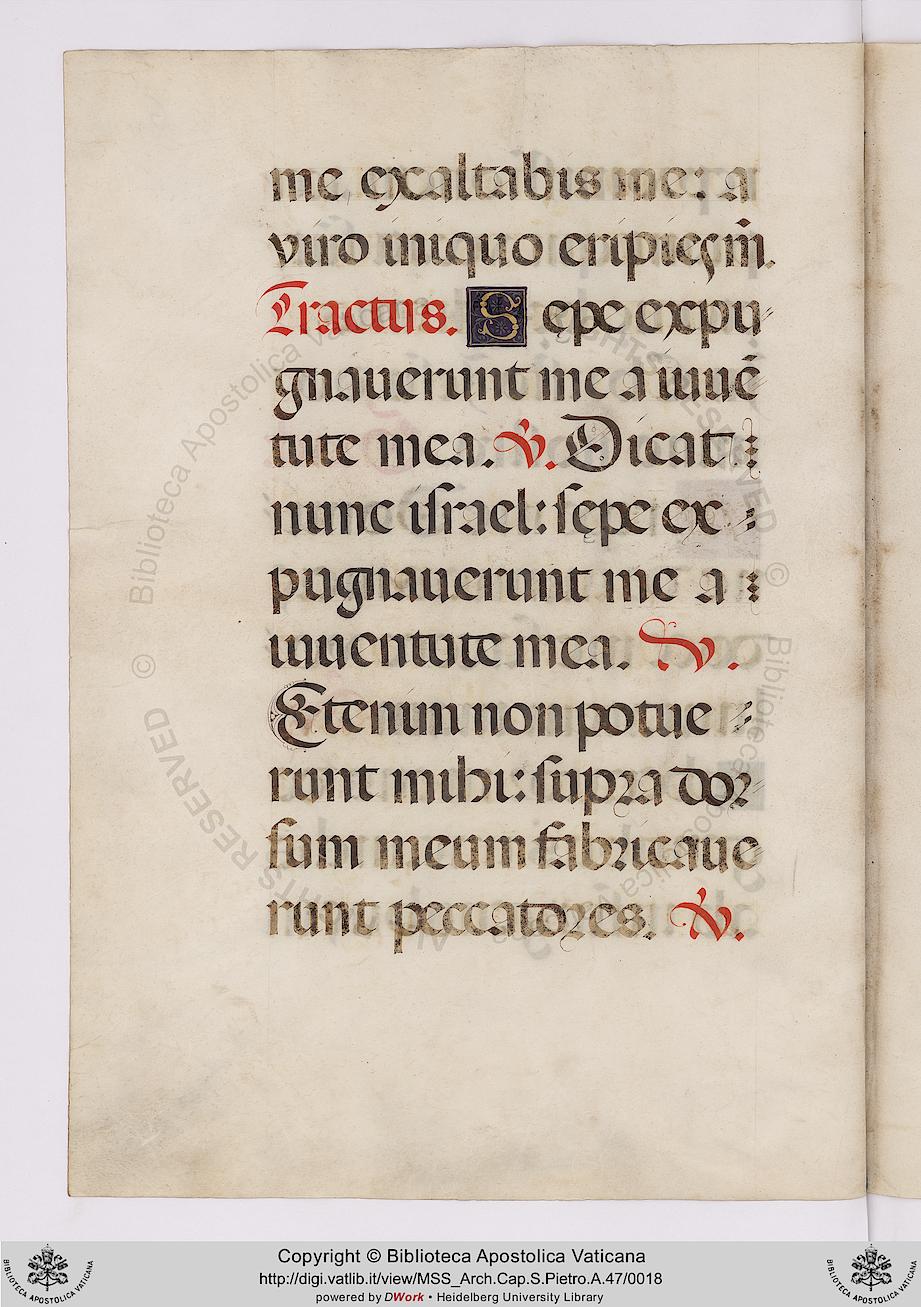 me exaltabis me: a
viro iniquo eripięs m̄.
Tractus. Sępe expu
gnauerunt me a iuuē
tute mea. ℣. Dicat
nunc iſrael: ſępe ex
pugnauerunt me a
iuuentute mea. ℣.
Etenim non potue
runt mihi: ſupra dor
ſum meum fabricaue
runt peccatores. ℣.
Biblioteca Apostolica Vaticana
ALL RIGHTS RESERVED ©
Copyright © Biblioteca Apostolica Vaticana
http://digi.vatlib.it/view/MSS_Arch.Cap.S.Pietro.A.47/0018
powered by DWork • Heidelberg University Library
BIBLIOTECA APOSTOLICA VATICANA
BIBLIOTECA APOSTOLICA VATICANA